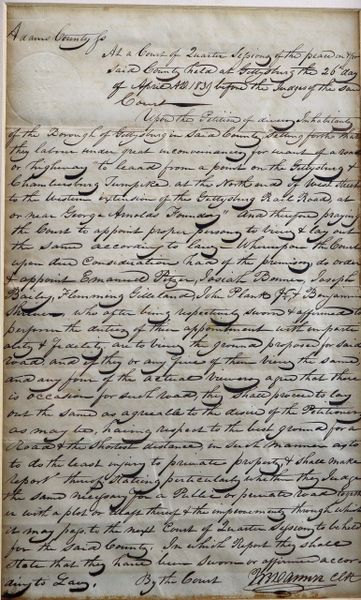 Adams County Ss
At a Court of Quarter Sessions of the peace in & for
Said County held at Gettysburg the 26th day
of April AD 1839 before the Judges of the said
Court
Upon the Petition of divers Inhabitants
of the Borough of Gettysburg in said County setting forth that
they labour under great inconveniency for want of a road
or highway to lead from a point on the Gettysburg &
Chambersburg Turnpike at the North end of West Street
to the Western extension of the Gettysburg Rail Road, at
or near George Arnolds Foundry And therefore praying
the Court to appoint proper persons to view & lay out
the same according to law. Whereupon the Court
upon due Consideration had of the premises do order
& appoint Emanuel Pitzer, Josiah Benner, Joseph
Baily, Flemming Gilleland, John Plank & Benjamin
who after being respectively sworn & affirmed to
perform the duties of their appointment with imparti-
ality & fidelity are to view the ground proposed for said
road and if they or any five of them view the same
and any four of the actual viewers agree that there
is occasion for such road, they shall proceed to lay
out the same as agreeable to the desire of the Petitioners
as may be, having respect to the best ground for a
Road & the shortest distance in such manner as
to do the least injury to private property & shall make
report thereof stating particularly whether they Judge
the same necessary for a Public or private road
with a plot or draft thereof & the improvements through which
it may pass, to the next Court of Quarter Sessions to be held
for the said County. In which Report they shall
state that they have been sworn or affirmed accor
ding to Law.
By the Court
Clk